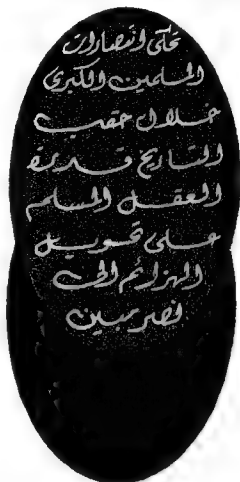 تحكى انتصارات
المسلمين الكبرى
خلال حقب
التاريخ قدرة
العقل المسلم
على تحويل
الهزائم إلى
نصر مبين